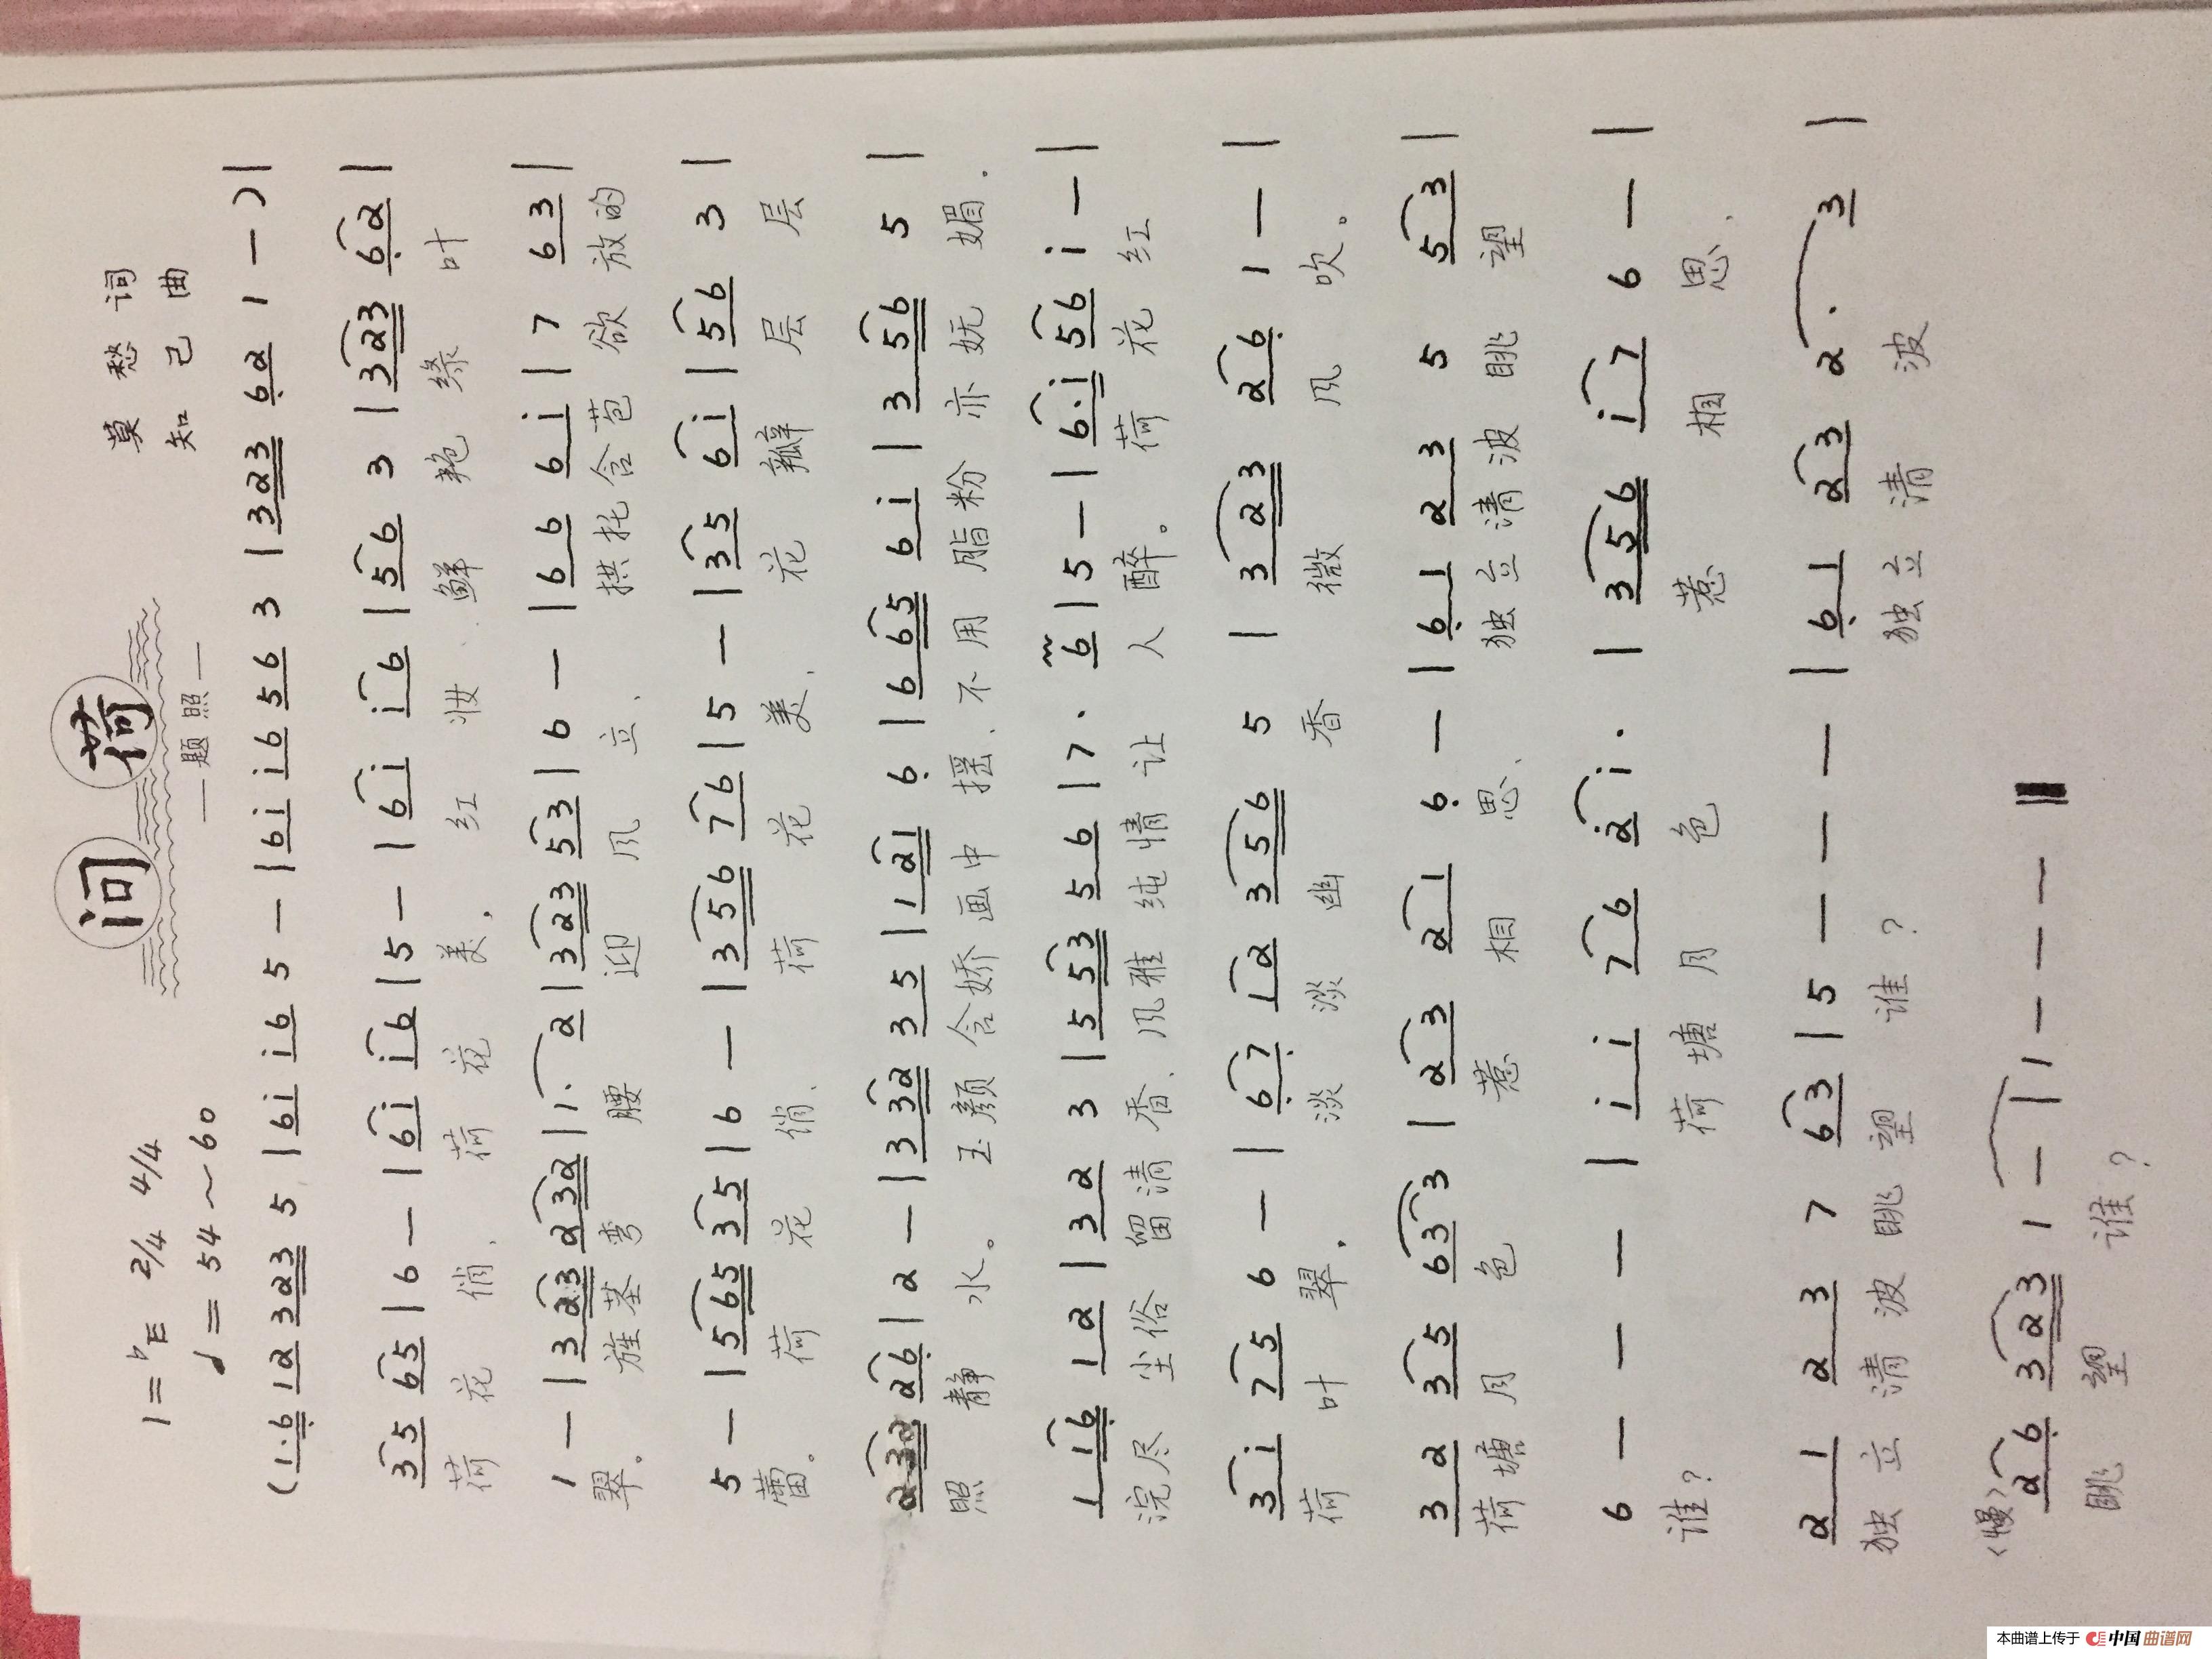 问荷
——题照——
莫愁 词
知己 曲
1=♭E 2/4 4/4
♩=54~60
(1·6 12 323 5 | 6i i6 5 — | 6i i6 56 3 | 323 62 1 —) |
35 65 | 6 — | 6i i6 | 5 — | 6i i6 | 56 3 | 323 62 |
荷花俏、荷花美,红妆、鲜艳绿叶
1 — | 323 232 | 1· 2 | 323 53 | 6 — | 66 6i | 7 63 |
翠。旌茎弯腰迎风立、拱托含苞欲放的
5 — | 565 35 | 6 — | 356 76 | 5 — | 35 6i | 56 3 |
蕾。荷花俏、荷花美、花瓣层层
232 26 | 2 — | 332 35 | 121 6 | 665 6i | 356 5 |
照静水。玉颜含娇画中摇、不用脂粉亦妩媚.
116 12 | 32 3 | 553 56 | 7· 6 | 5 — | 6·i 56 i — |
浣尽尘俗留清香、风雅纯情让人醉。荷花红
3i 75 6 — | 67 12 356 5 | 323 26 1 — |
荷叶翠,淡淡幽香微风吹。
32 35 63 3 | 23 21 6 — | 61 23 5 53 |
荷塘月色惹相思、独立清波眺望
6 — — — | ii 76 2i· | 356 i7 6 — |
谁?荷塘月色惹相思、
21 23 7 63 | 5 — — — | 61 23 2· 3 |
独立清波眺望谁?独立清波
<慢>
26 323 1 — | 1 — — — ‖
眺望谁?
本曲谱上传于 中国曲谱网